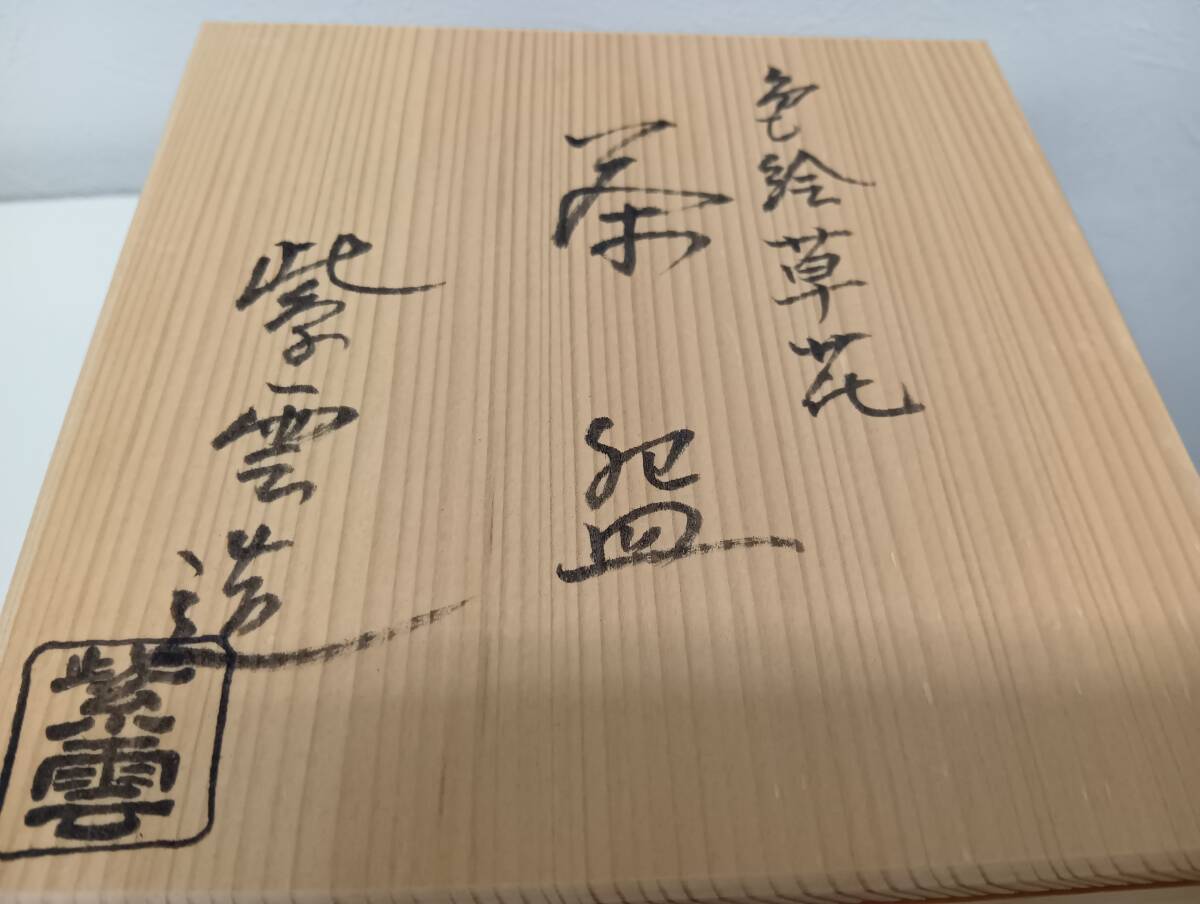 色絵草花
茶盌
紫雲造
紫雲